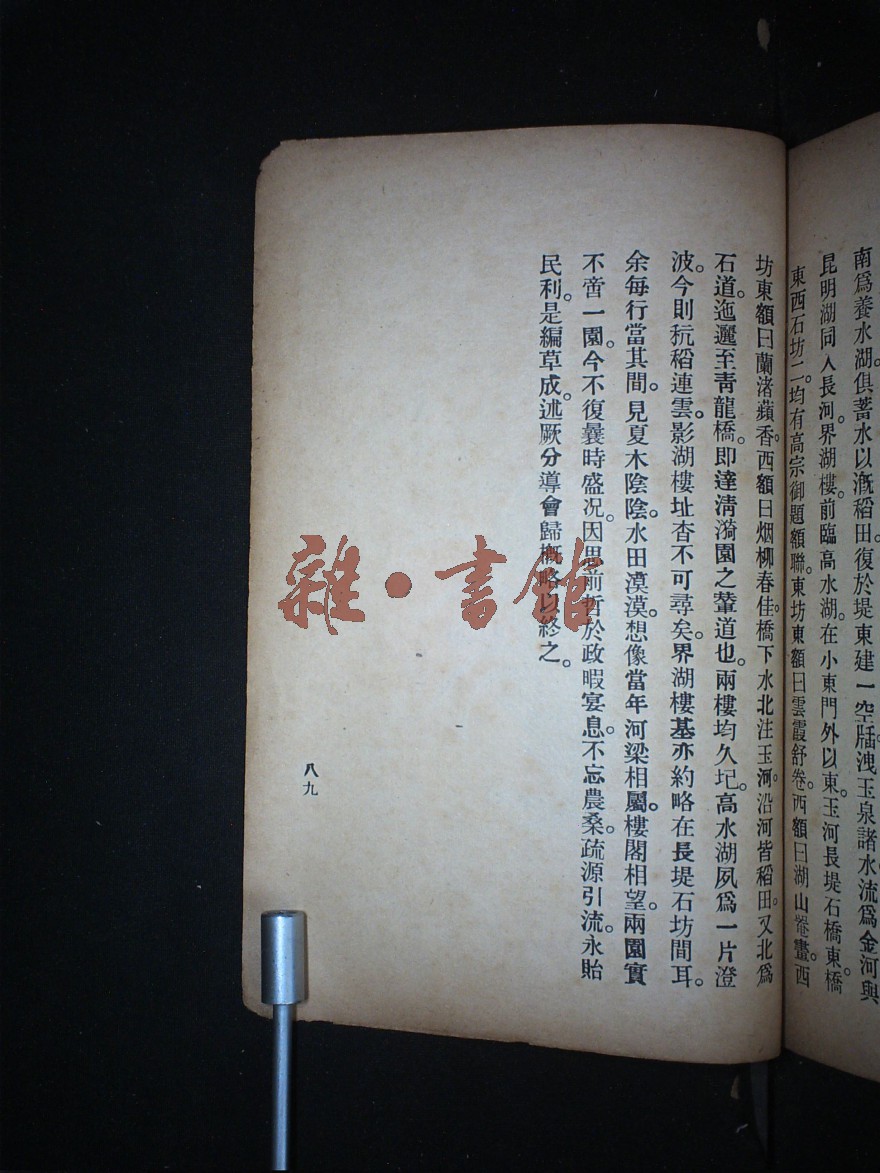 南爲養水湖。俱蓄水以漑稻田。復於堤東建一空牐。洩玉泉諸水流爲金河與
昆明湖同入長河。界湖樓。前臨高水湖。在小東門外以東。玉河長堤石橋東。橋
東西石坊二。均有高宗御題額聯。東坊東額曰雲霞舒卷。西額曰湖山罨畫。西
坊東額曰蘭渚蘋香。西額曰烟柳春佳。橋下水北注玉河。沿河皆稻田。又北爲
石道。迤邐至靑龍橋。卽達淸漪園之輦道也。兩樓均久圮。高水湖夙爲一片澄
波。今則秔稻連雲。影湖樓址杳不可尋矣。界湖樓基亦約略在長堤石坊間耳。
余每行當其間。見夏木陰陰。水田漠漠。想像當年河梁相屬。樓閣相望。兩園實
不啻一園。今不復曩時盛况。因思前哲於政暇宴息。不忘農桑。疏源引流。永貽
民利。是編草成。述厥分導會歸槪略以終之。
八九
雜·書館